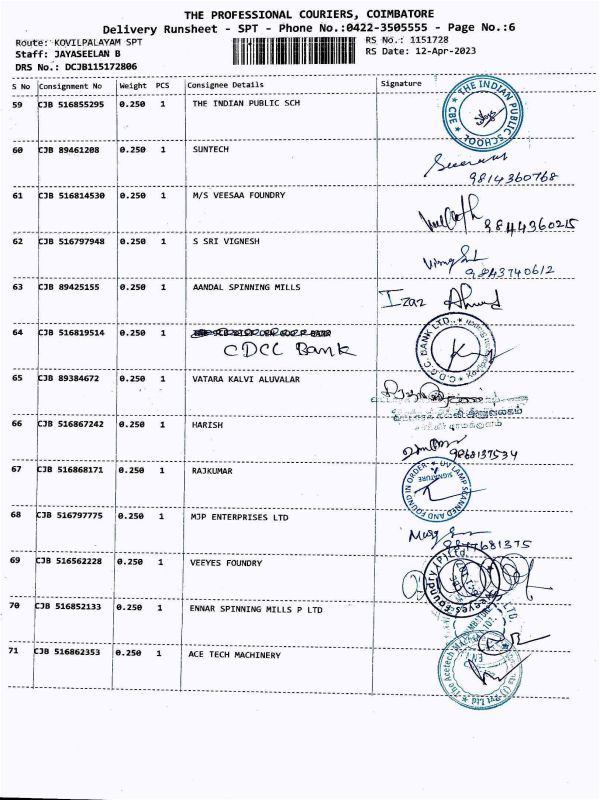 THE PROFESSIONAL COURIERS, COIMBATORE
Delivery Runsheet - SPT - Phone No.:0422-3505555 - Page No.:6
Route: KOVILPALAYAM SPT RS No.: 1151728
Staff: JAYASEELAN B RS Date: 12-Apr-2023
DRS No.: DCJB115172806
S No Consignment No Weight PCS Consignee Details Signature
59 CJB 516855295 0.250 1 THE INDIAN PUBLIC SCH
THE INDIAN PUBLIC SCHOOL CBE
60 CJB 89461208 0.250 1 SUNTECH
9814360768
61 CJB 516814530 0.250 1 M/S VEESAA FOUNDRY
9844360215
62 CJB 516797948 0.250 1 S SRI VIGNESH
9843740612
63 CJB 89425155 0.250 1 AANDAL SPINNING MILLS Izaz Ahmed
64 CJB 516819514 0.250 1
CDCC Bank
C.D.C.C. BANK LTD.,
65 CJB 89384672 0.250 1 VATARA KALVI ALUVALAR
66 CJB 516867242 0.250 1 HARISH
9868137534
67 CJB 516868171 0.250 1 RAJKUMAR
UV LAMP SCANNED AND FOUND IN ORDER
SIGNATURE
68 CJB 516797775 0.250 1 MJP ENTERPRISES LTD
9877681375
69 CJB 516562228 0.250 1 VEEYES FOUNDRY
Veeyes Foundry (P) Ltd
70 CJB 516852133 0.250 1 ENNAR SPINNING MILLS P LTD
71 CJB 516862353 0.250 1 ACE TECH MACHINERY
The Acetech (I) Pvt Ltd